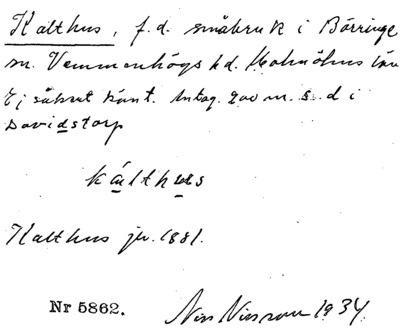 Kalthus, f.d. småbruk i Börringe
sn. Vemmenhögs hd. Malmöhus län
Ej säkert känt. Antag. 200 m. s. d i
Davidstorp
kálthus
Kalthus jb. 1881.
Nr 5862. Nils Nilsson 1934